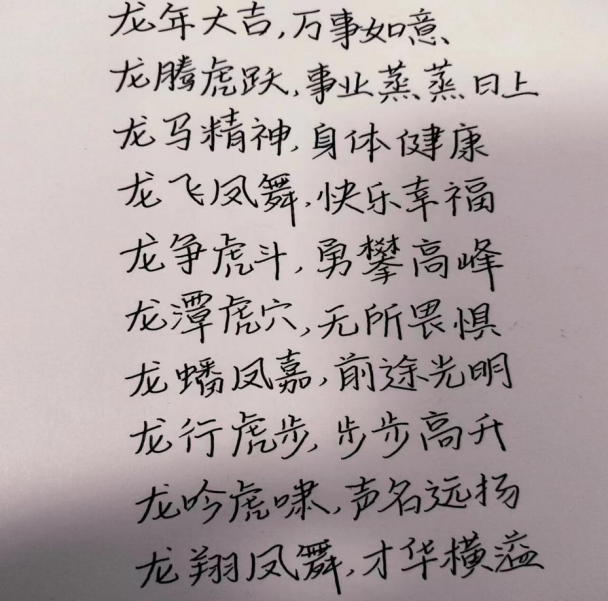 龙年大吉,万事如意
龙腾虎跃,事业蒸蒸日上
龙马精神,身体健康
龙飞凤舞,快乐幸福
龙争虎斗,勇攀高峰
龙潭虎穴,无所畏惧
龙蟠凤嘉,前途光明
龙行虎步,步步高升
龙吟虎啸,声名远扬
龙翔凤舞,才华横溢